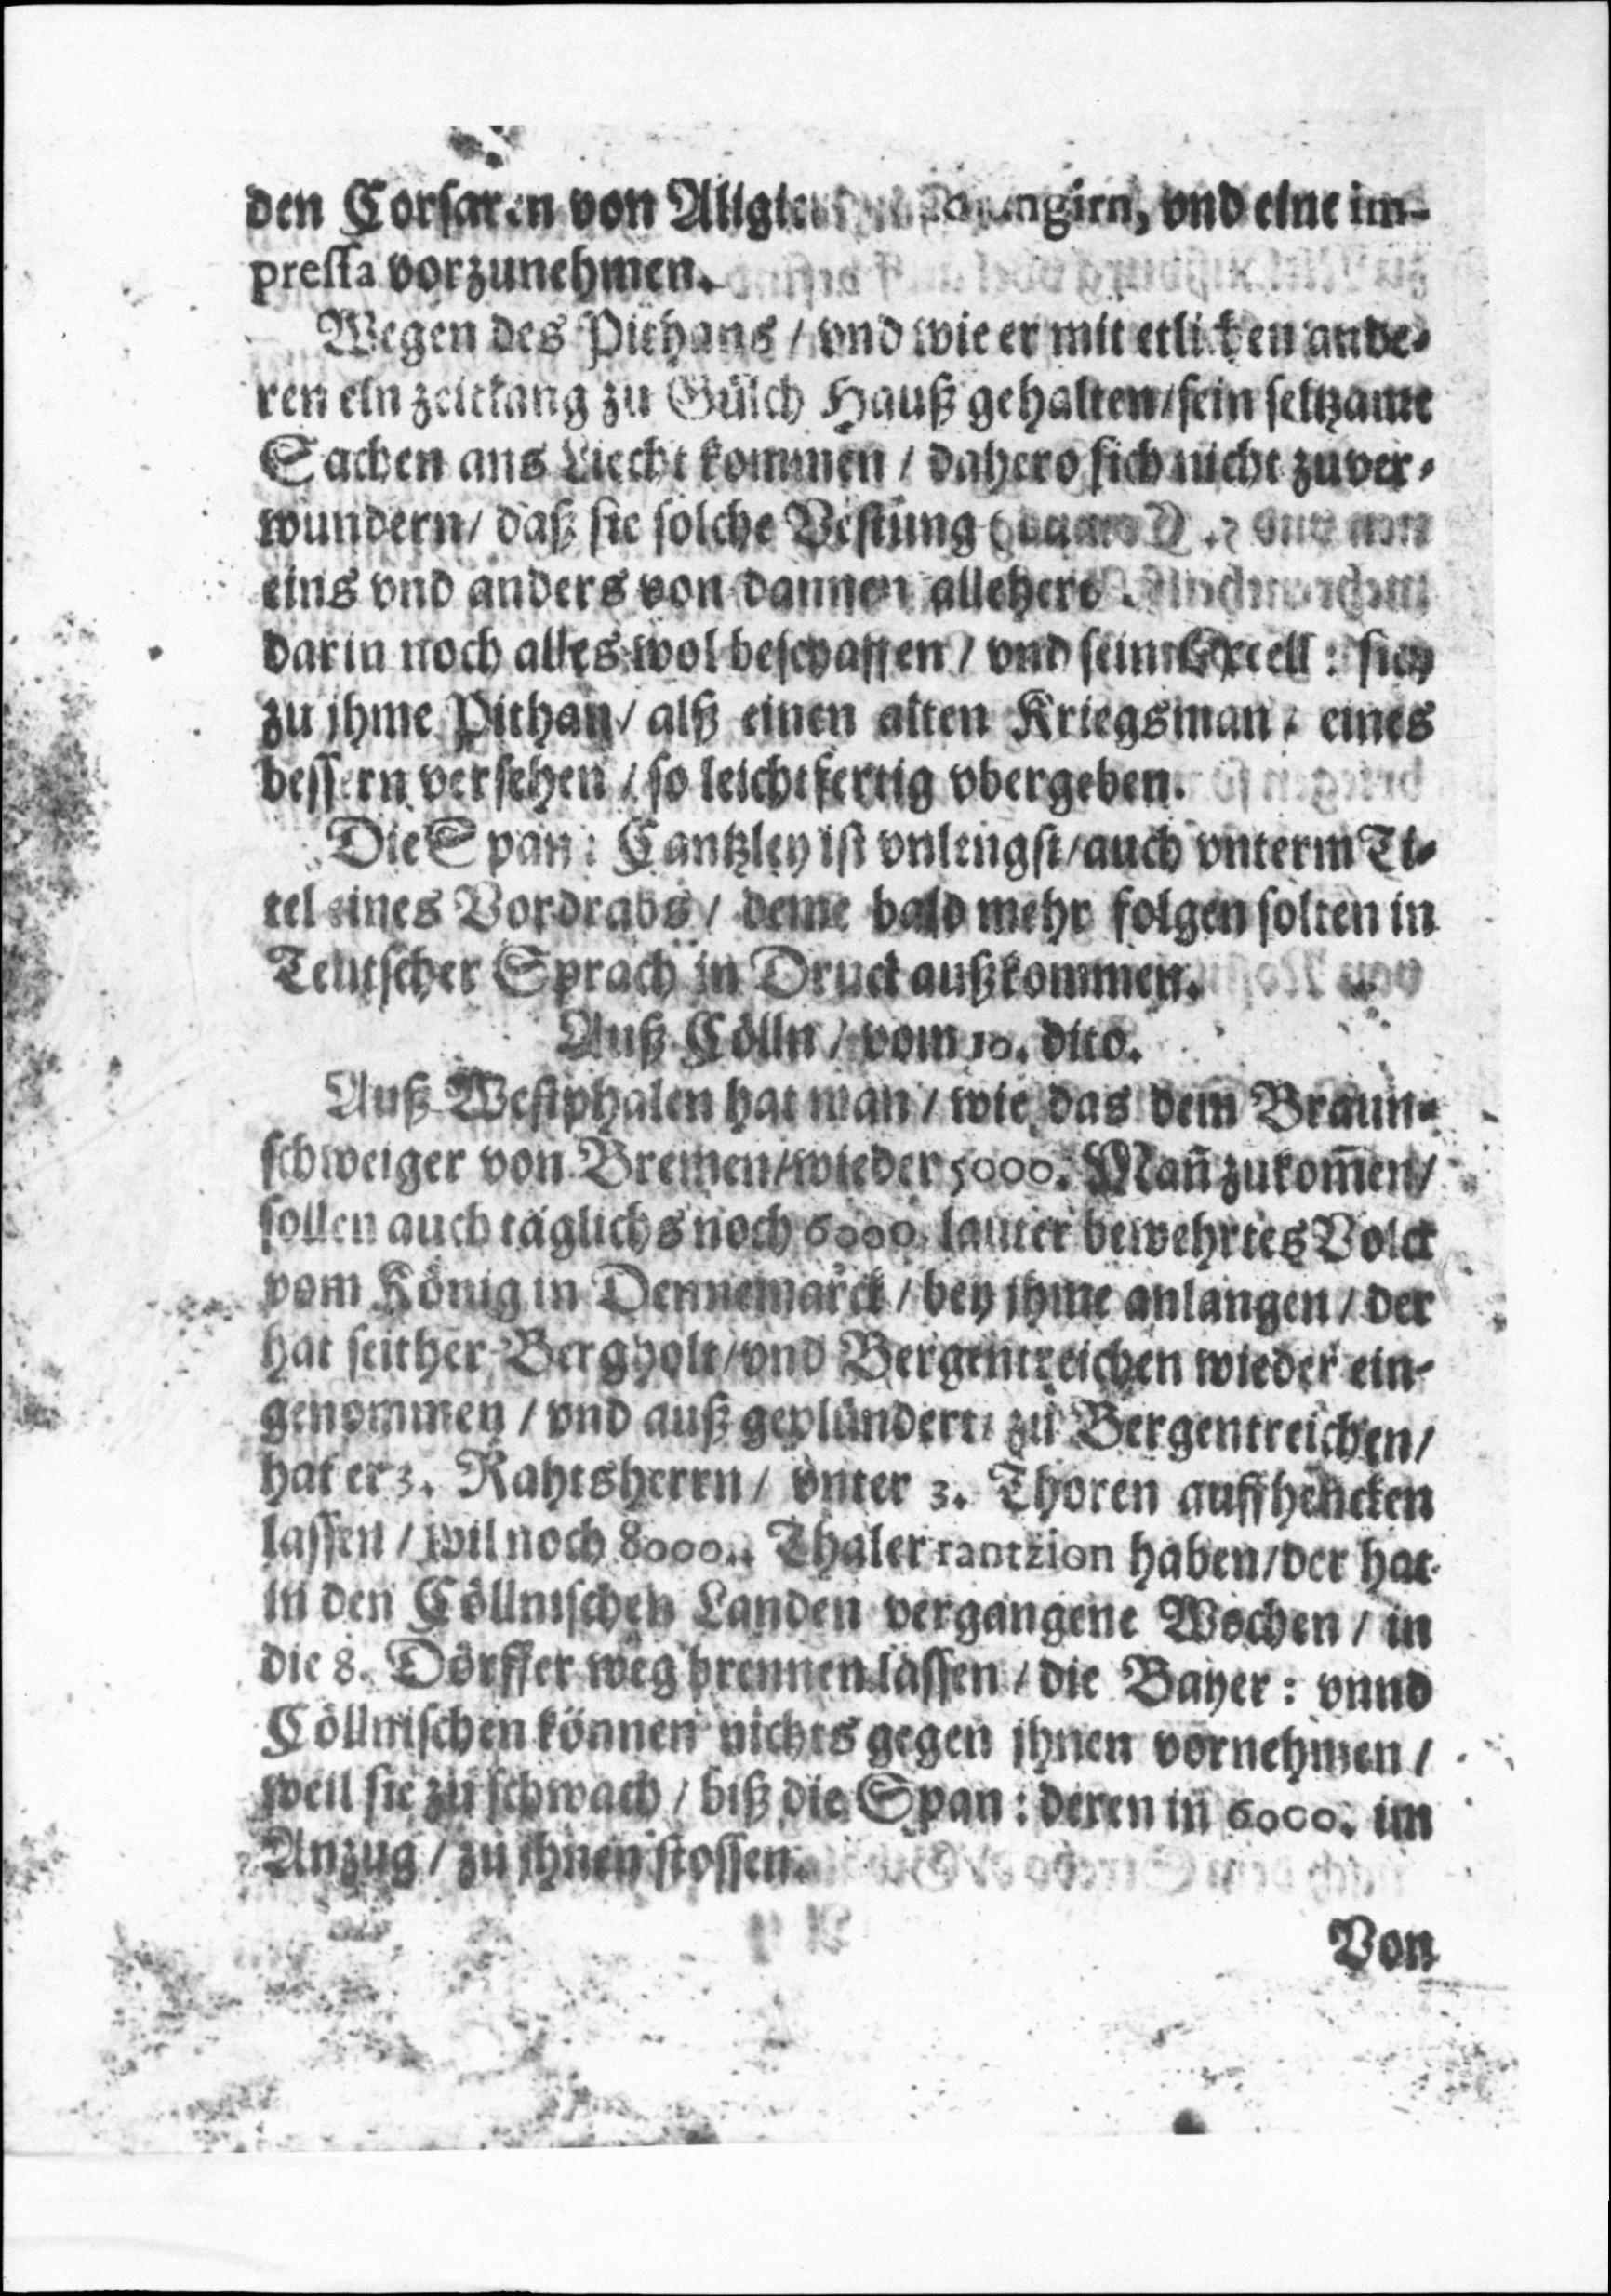 den Corsaren von Allgier vnd eine im-
pressa vorzunehmen.
Wegen des Pithans / vnd wie er mit etlichen ande-
ren ein zeitlang zu Gülch Hauß gehalten / sein seltzame
Sachen ans Liecht kommen / dahero sich nicht zuver-
wundern / daß sie solche Vestung
eins vnd anders von dannen allehero
darin noch alles wol beschaffen / vnd seine Excell: sich
zu jhme Pithan / alß einen alten Kriegsman / eines
bessern versehen / so leichtfertig vbergeben.
Die Span: Cantzley ist vnlengst / auch vnterm Ti-
tel eines Vordrabs / deme bald mehr folgen solten in
Teutscher Sprach in Druck außkommen.
Auß Cölln / vom 10. dito.
Auß Westphalen hat man / wie das dem Braun-
schweiger von Bremen / wieder 5000. Mañ zukom̃en /
sollen auch täglichs noch 6000. lauter bewehrtes Volck
vom König in Dennemarck / bey jhme anlangen / der
hat seither Bergholt / vnd Bergentreichen wieder ein-
genommen / vnd auß geplündert / zu Bergentreichen /
hat er 3. Rahtsherrn / vnter 3. Thoren auffhencken
lassen / wil noch 8000. Thaler rantzion haben / der hat
in den Cöllnischen Landen vergangene Wochen / in
die 8. Dörffer weg brennen lassen / die Bayer: vnnd
Cöllnischen können nichts gegen jhnen vornehmen /
weil sie zu schwach / biß die Span: deren in 6000. im
Anzug / zu jhnen stossen.
Von